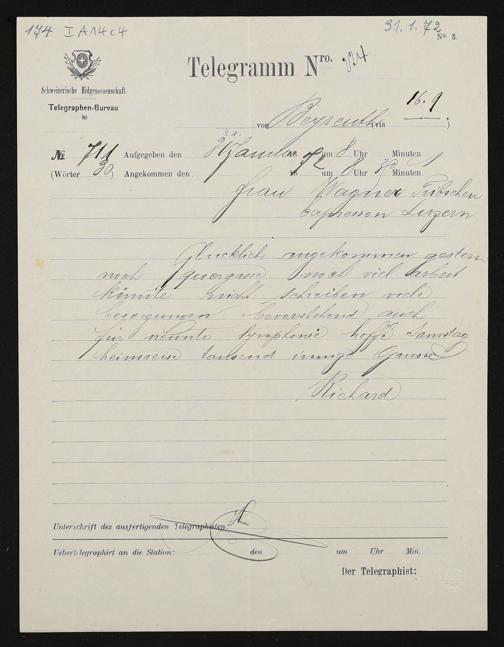 174 I A 14 c 4
31.1.72
No 8.
Telegramm Nro. 224
Schweizerische Eidgenossenschaft.
Telegraphen-Bureau
in
von Beyreuth (via 16.9 )
31.
№ 711 Aufgegeben den Januar 72 um 8 Uhr Minuten
(Wörter 30) Angekommen den 18 um 8 Uhr Minuten
Frau Wagner Tribschen
expressen Luzern
Glucklich angekommen gestern
noch viel Arbeit
könnte nicht schreiben viele
besorgungen bevorstehend auch
für neunte symphonie hoffe Samstag
heimreise tausend innige Grüsse
Richard
Unterschrift des ausfertigenden Telegraphisten:
Uebertelegraphirt an die Station: den um Uhr Min.
Der Telegraphist: